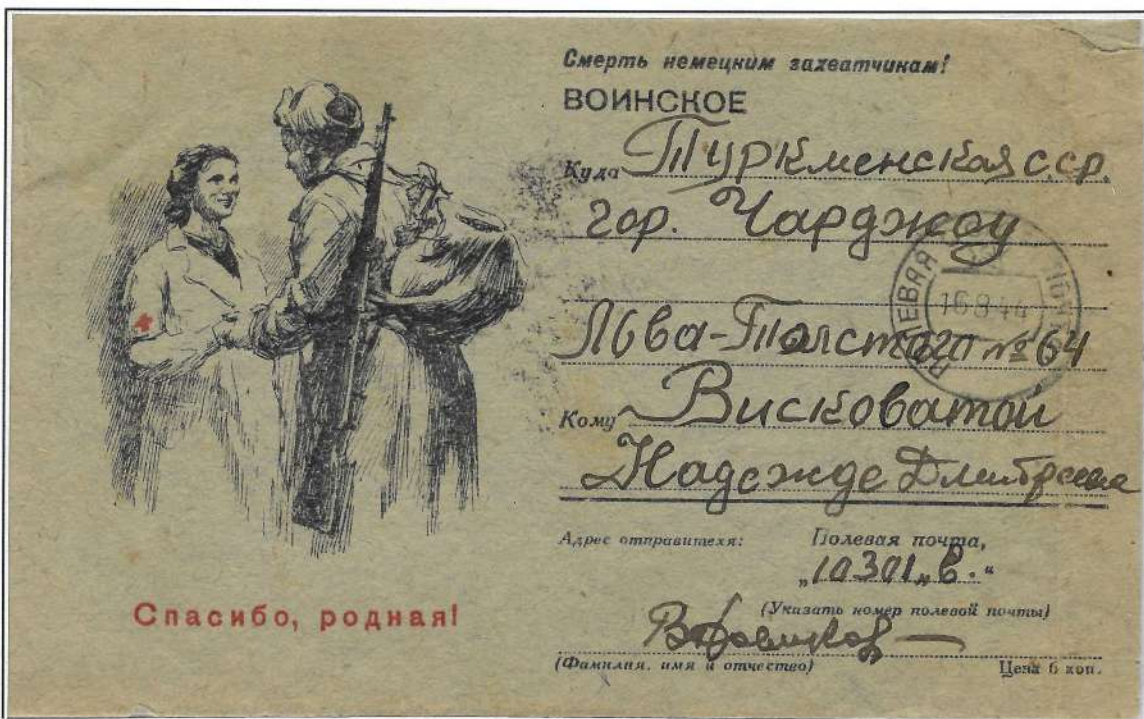 Смерть немецким захватчикам!
ВОИНСКОЕ
Куда Туркменская ССР.
гор. Чарджоу
ПОЛЕВАЯ
16 8 44
Льва-Толстого № 64
Кому Висковатой
Надежде
Адрес отправителя: Полевая почта,
„10301„В.“
(Указать номер полевой почты)
(Фамилия, имя и отчество) Цена 6 коп.
Спасибо, родная!